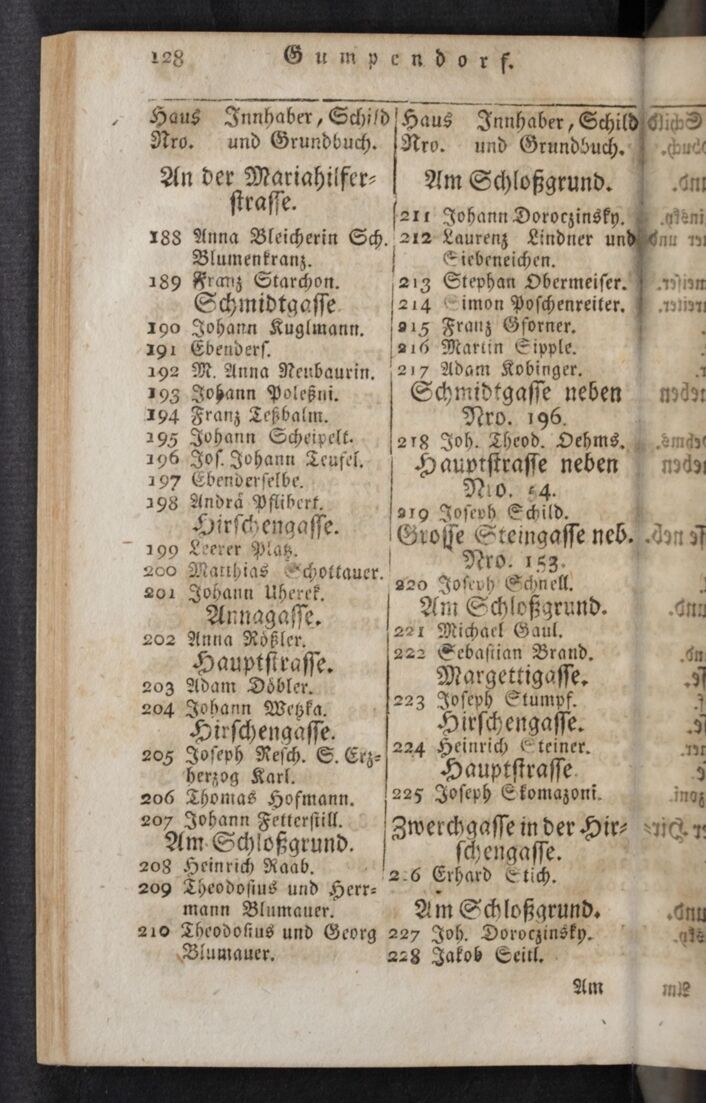 128 Gumpendorf.
Haus Innhaber, Schild
Nro. und Grundbuch.
An der Mariahilfer-
strasse.
188 Anna Bleicherin Sch.
Blumenkranz.
189 Franz Starchon.
Schmidtgasse
190 Johann Kuglmann.
191 Ebenders.
192 M. Anna Neubaurin.
193 Johann Poleßni.
194 Franz Teßbalm.
195 Johann Scheipelt.
196 Jos. Johann Teufel.
197 Ebenderselbe.
198 Andrä Pflibert.
Hirschengasse.
199 Leerer Platz.
200 Matthias Schottauer.
201 Johann Uherek.
Annagasse.
202 Anna Rößler.
Hauptstrasse.
203 Adam Döbler.
204 Johann Wetzka.
Hirschengasse.
205 Joseph Resch. S. Erz-
herzog Karl.
206 Thomas Hofmann.
207 Johann Fetterstill.
Am Schloßgrund.
208 Heinrich Raab.
209 Theodosius und Herr-
mann Blumauer.
210 Theodosius und Georg
Blumauer.
Haus Innhaber, Schild
Nro. und Grundbuch.
Am Schloßgrund.
211 Johann Doroczinsky.
212 Laurenz Lindner und
Siebeneichen.
213 Stephan Obermeiser.
214 Simon Poschenreiter.
215 Franz Gsorner.
216 Martin Sipple.
217 Adam Kobinger.
Schmidtgasse neben
Nro. 196.
218 Joh. Theod. Oehms.
Hauptstrasse neben
Nro. 54.
219 Joseph Schild.
Grosse Steingasse neb.
Nro. 153.
220 Joseph Schnell.
Am Schloßgrund.
221 Michael Gaul.
222 Sebastian Brand.
Margettigasse.
223 Joseph Stumpf.
Hirschengasse.
224 Heinrich Steiner.
Hauptstrasse
225 Joseph Skomazoni.
Zwerchgasse in der Hir-
schengasse.
226 Erhard Stich.
Am Schloßgrund.
227 Joh. Doroczinsky.
228 Jakob Seitl.
Am